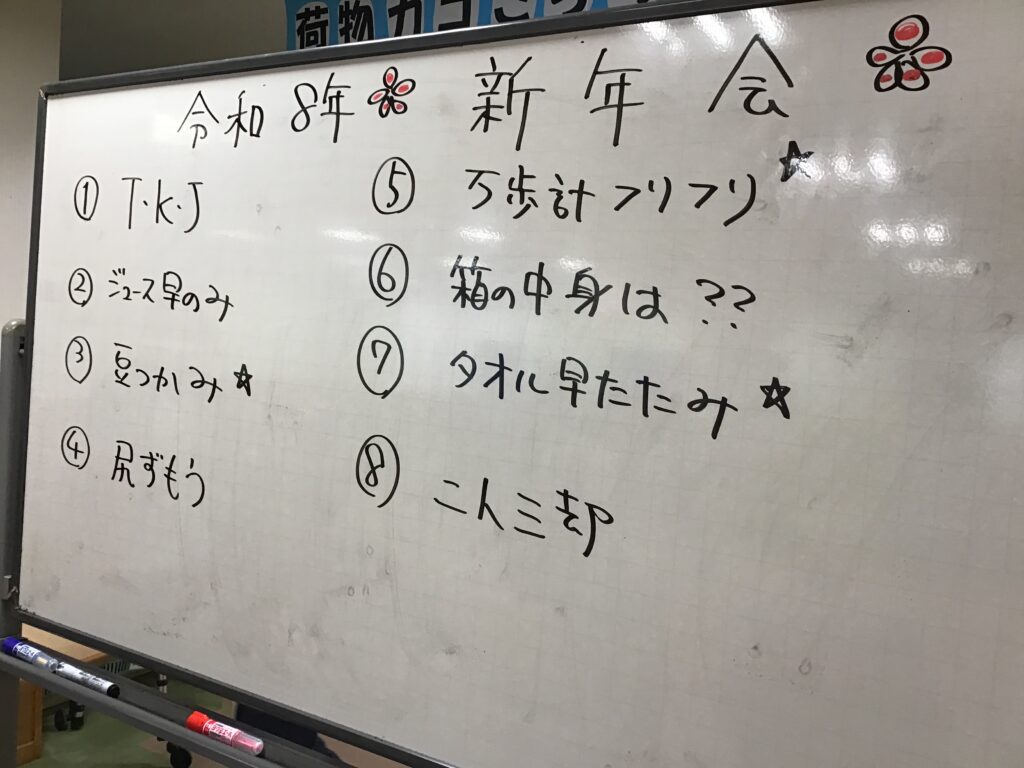 荷物カゴ
令和8年 新年会
① T・K・J
② ジュース早のみ
③ 豆つかみ☆
④ 尻ずもう
⑤ 万歩計フリフリ☆
⑥ 箱の中身は??
⑦ タオル早たたみ☆
⑧ 二人三却